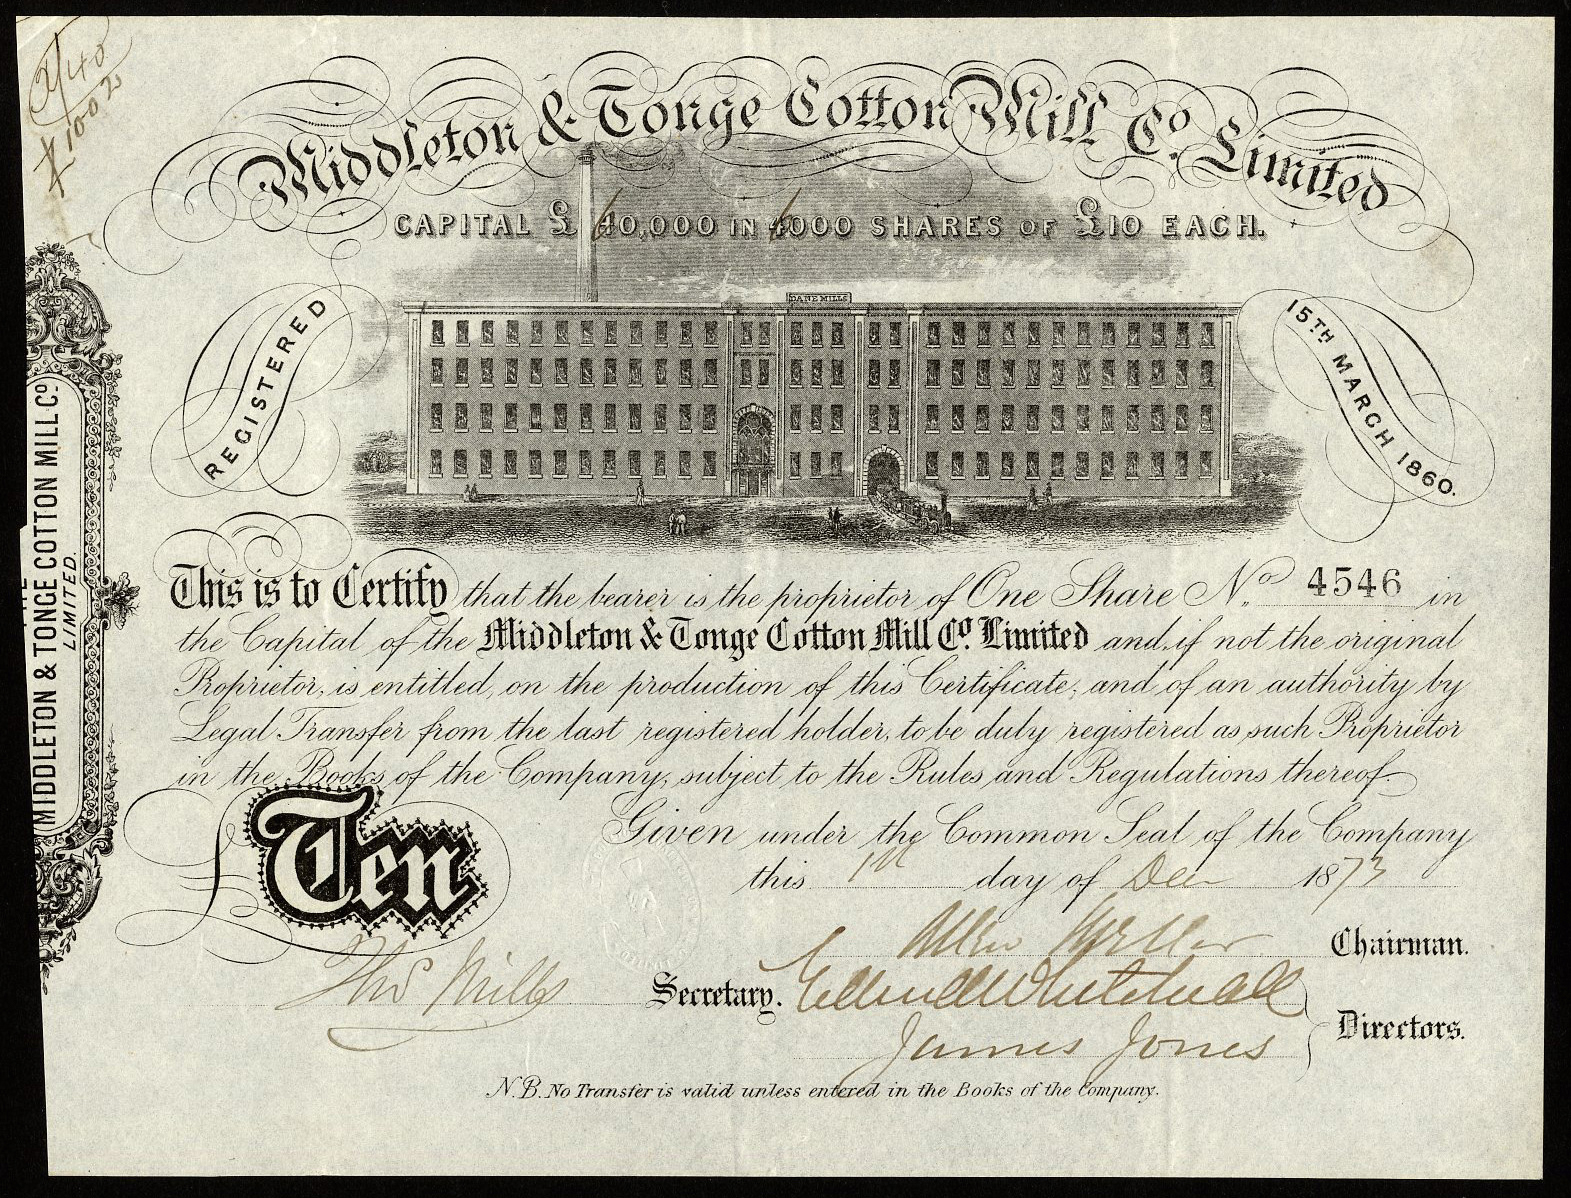 Middleton & Tonge Cotton Mill Co. Limited
CAPITAL £60,000 IN 6000 SHARES OF £10 EACH.
REGISTERED
15TH MARCH 1860.
DANE MILLS
MIDDLETON & TONGE COTTON MILL CO
LIMITED.
This is to Certify that the bearer is the proprietor of One Share No. 4546 in
the Capital of the Middleton & Tonge Cotton Mill Co. Limited and, if not the original
Proprietor, is entitled, on the production of this Certificate, and of an authority by
Legal Transfer from the last registered holder, to be duly registered as such Proprietor
in the Books of the Company, subject to the Rules and Regulations thereof.
£Ten
Given under the Common Seal of the Company
this 1st day of Dec 1873
Chairman.
Thos Mills Secretary.
James Jones Directors.
N.B. No Transfer is valid unless entered in the Books of the Company.